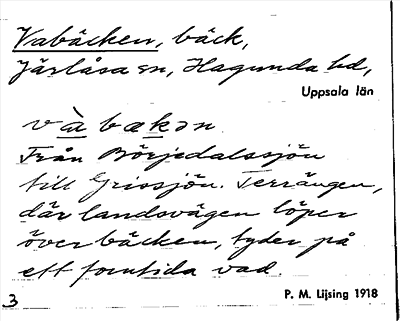 Vabäcken, bäck,
Järlåsa sn, Hagunda hd,
Uppsala län
v à b æ k ə n
Från Börjedalssjön
till Grissjön. Terrängen,
där landsvägen löper
över bäcken, tyder på
ett forntida vad.
3
P. M. Lijsing 1918